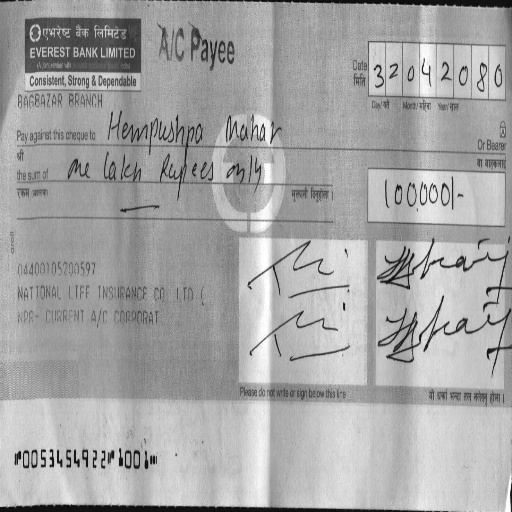 एभरेष्ट बैंक लिमिटेड
EVEREST BANK LIMITED
Consistent, Strong & Dependable
A/C Payee
BAGBAZAR BRANCH
Date
मिति
32042080
Day/गते Month/महिना Year/साल
Pay against this cheque to Hempushpa Mahar
Or Bearer
श्री
वा वाहकलाई
the sum of one lakh Rupees only
100,000/-
04400105200597
NATIONAL LIFE INSURANCE CO. LTD (
NPR- CURRENT A/C CORPORAT
Please do not write or sign below this line
⑈0053454922⑈1001⑈